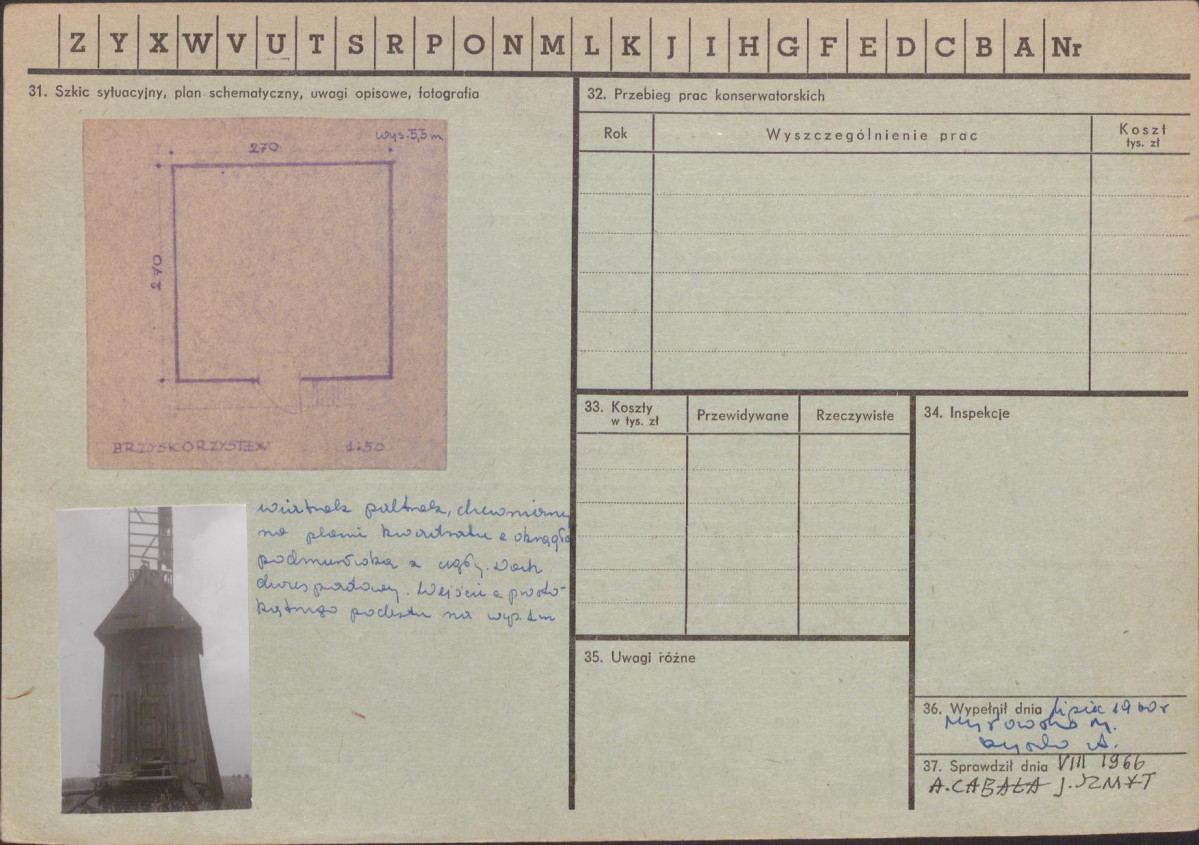 Z Y X W V U T S R P O N M L K J I H G F E D C B A Nr
31. Szkic sytuacyjny, plan schematyczny, uwagi opisowe, fotografia
wys. 5,5 m
270
270
BRZYSKORZYSTEW 1:50
wiatrak paltrak, drewniany
na planie kwadratu o okrągłą
podmurówka z cegły. Dach
dwuspadowy. Wejście z prosto-
kątnego podestu na wys 1m
32. Przebieg prac konserwatorskich
Rok Wyszczególnienie prac Koszt
tys. zł
33. Koszty
w tys. zł
Przewidywane Rzeczywiste
34. Inspekcje
35. Uwagi różne
36. Wypełnił dnia lipiec 1960r
37. Sprawdził dnia VIII 1966
A. CABAŁA J. SZMYT